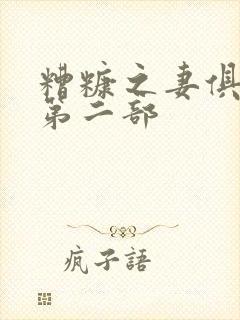 糟糠之妻俱
第二部
疯子語